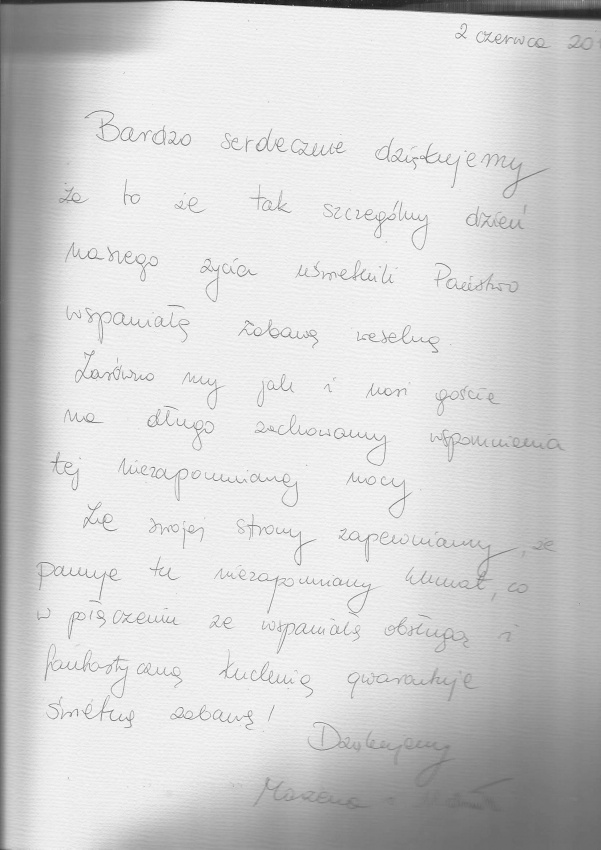 2 czerwca 20
Bardzo serdecznie dziękujemy
za to że tak szczególny dzień
naszego życia uświetnili Państwo
wspaniałą zabawą weselną.
Zarówno my jak i nasi goście
na długo zachowamy wspomnienia
tej niezapomnianej nocy
Ze swojej strony zapewniamy, że
panuje tu niezapomniany klimat, co
w połączeniu ze wspaniałą obsługą i
fantastyczną kuchnią gwarantuje
świetną zabawę!
Dziękujemy
Marzena i